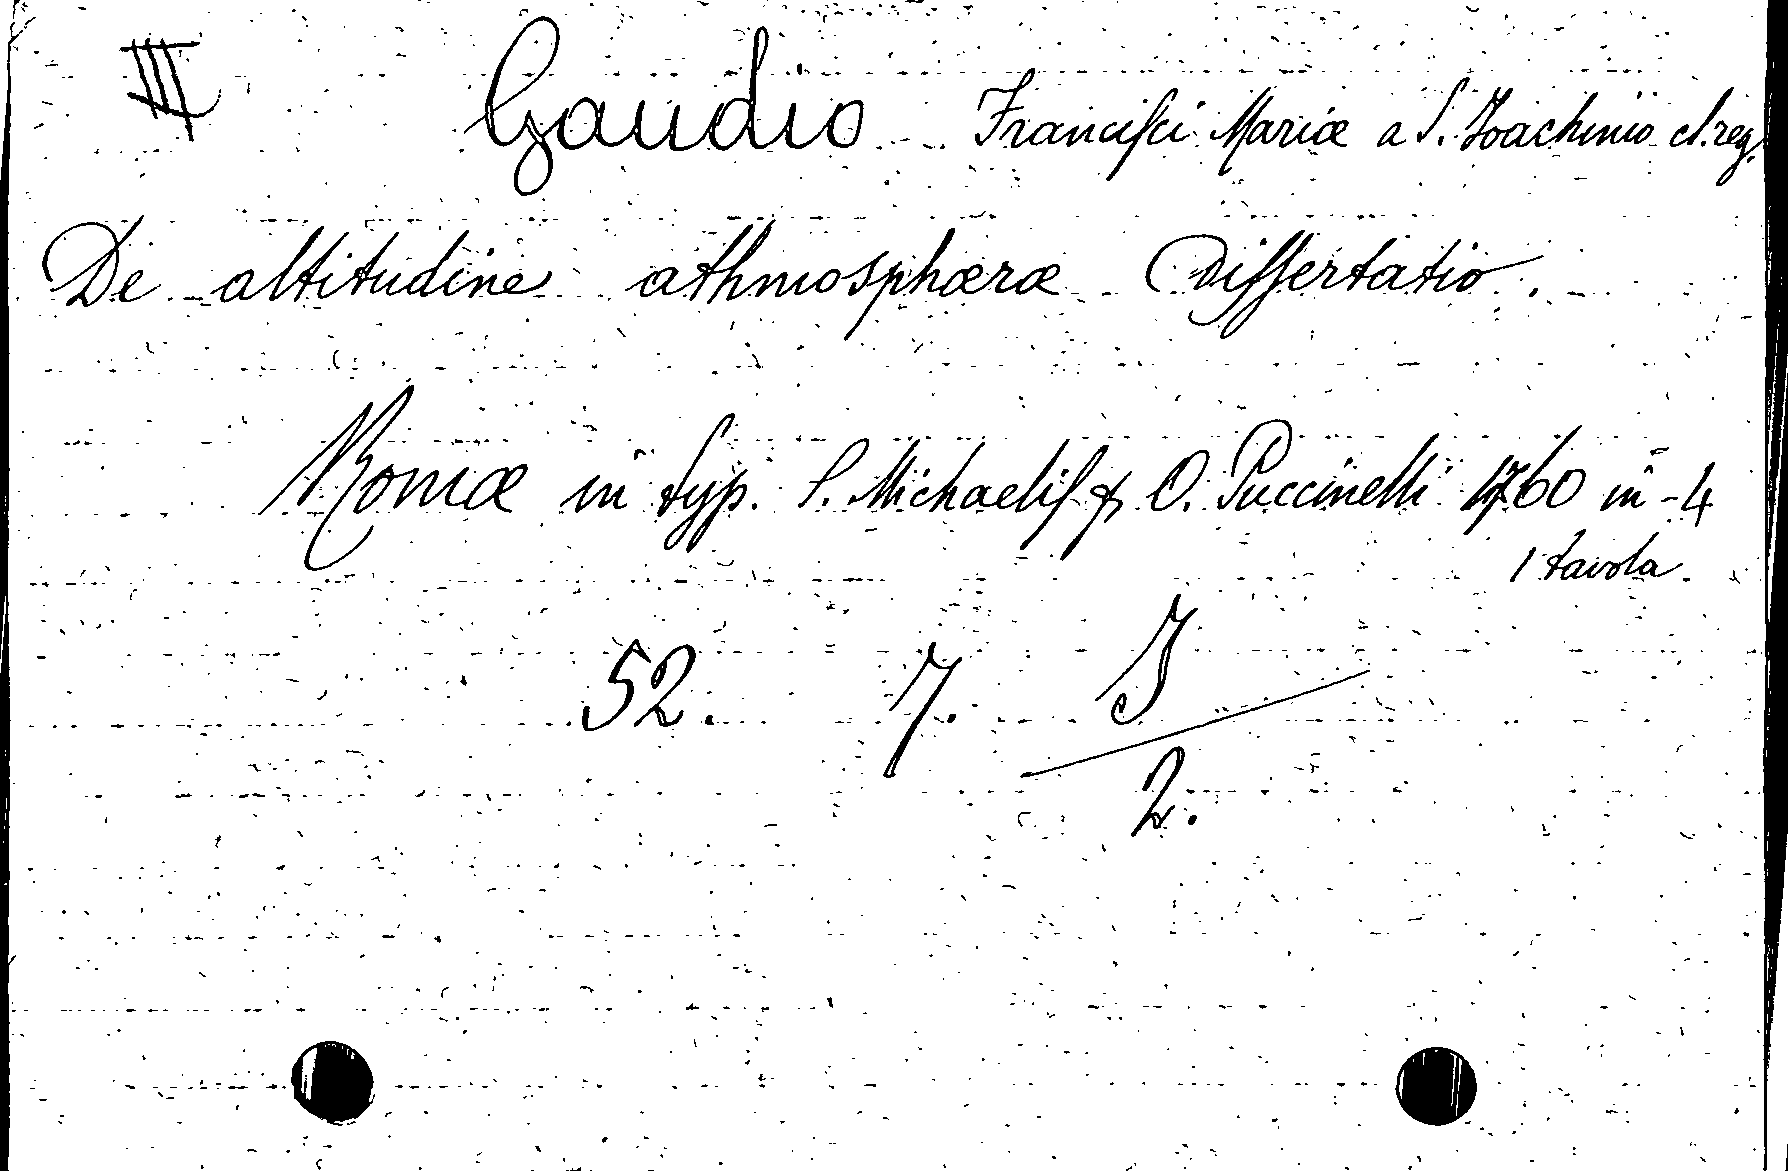 III Gaudio Francisci Mariæ a S. Ioachimo cl. reg.
De altitudine athmosphæræ Dissertatio.
Romæ in typ. S. Michaelis & O. Puccinelli 1760 in-4
1 tavola.
52. 7. I
2.